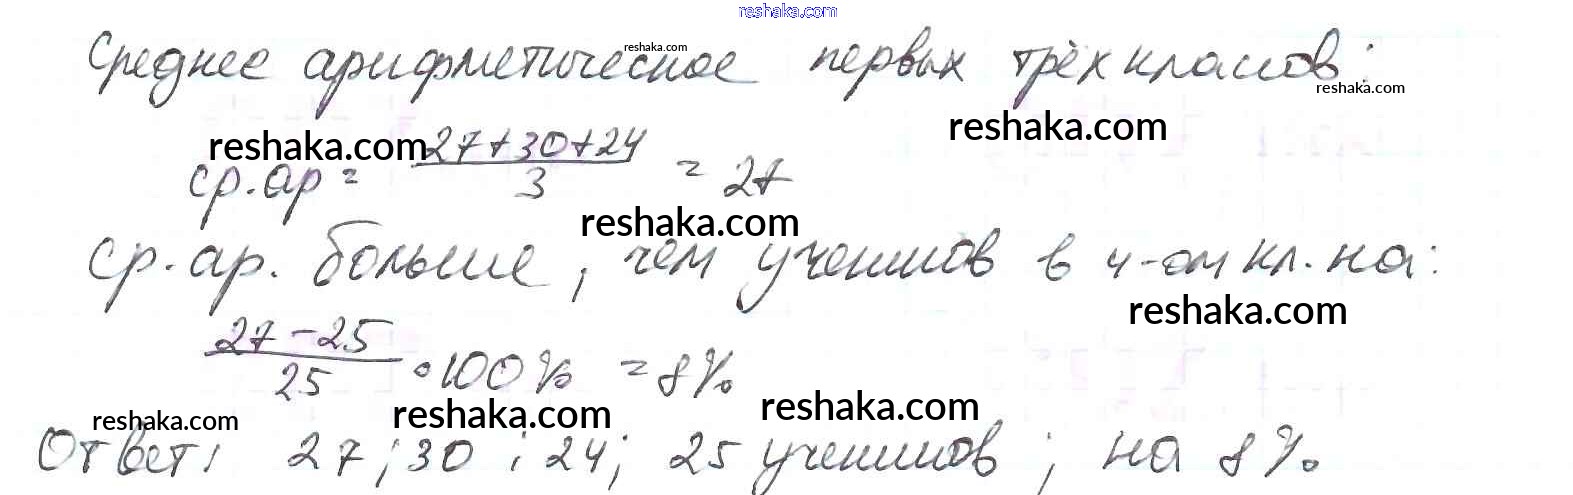 reshaka.com
Среднее арифметическое первых трёх классов:
reshaka.com
reshaka.com
reshaka.com
reshaka.com
ср. ар = (27+30+24)/3 = 27
reshaka.com
ср. ар. больше, чем учеников в 4-ом кл. на:
reshaka.com
(27-25)/25 · 100% = 8%
reshaka.com
reshaka.com
reshaka.com
Ответ: 27; 30; 24; 25 учеников; на 8%